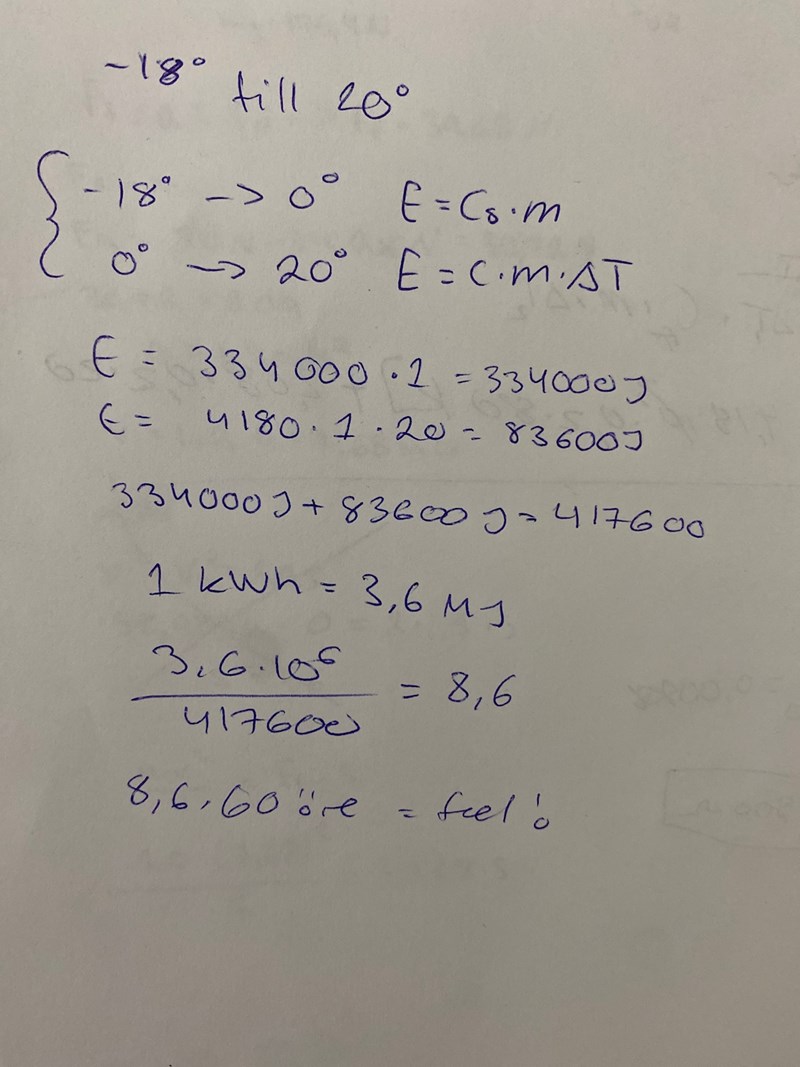 -18° till 20°
-18° -> 0° E = Cs·m
0° -> 20° E = C·m·ΔT
E = 334000·1 = 334000J
E = 4180·1·20 = 83600J
334000J + 83600J = 417600
1 kWh = 3,6 MJ
3,6·10⁶
417600
= 8,6
8,6·60 öre = fel!